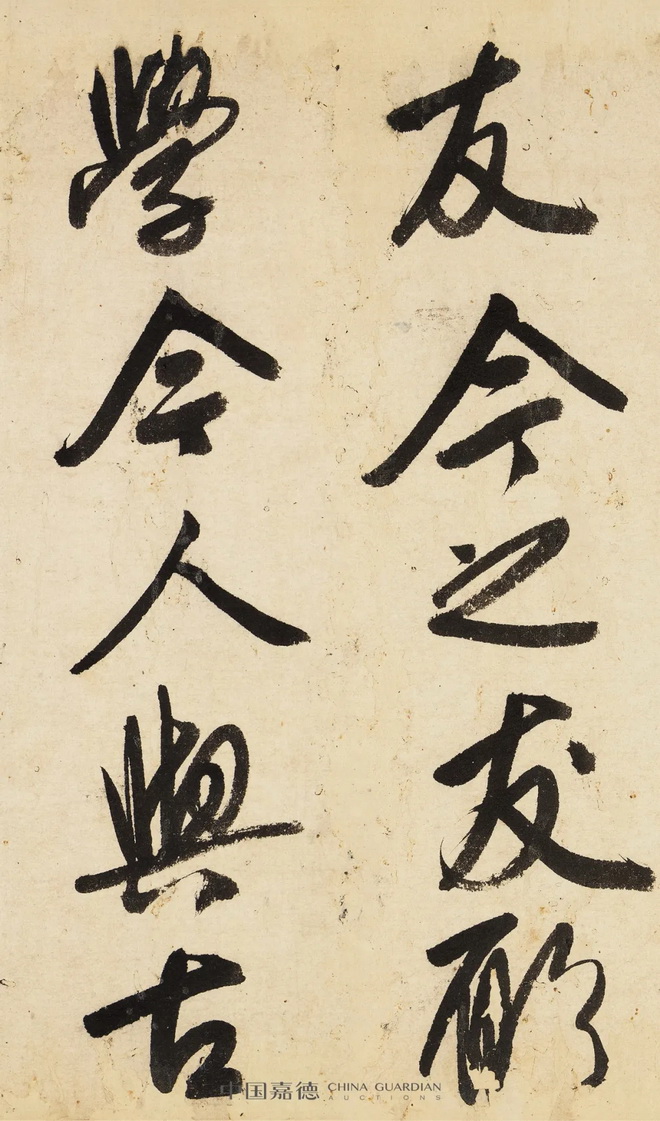 友今之友願
學今人與古
中国嘉德 CHINA GUARDIAN AUCTIONS